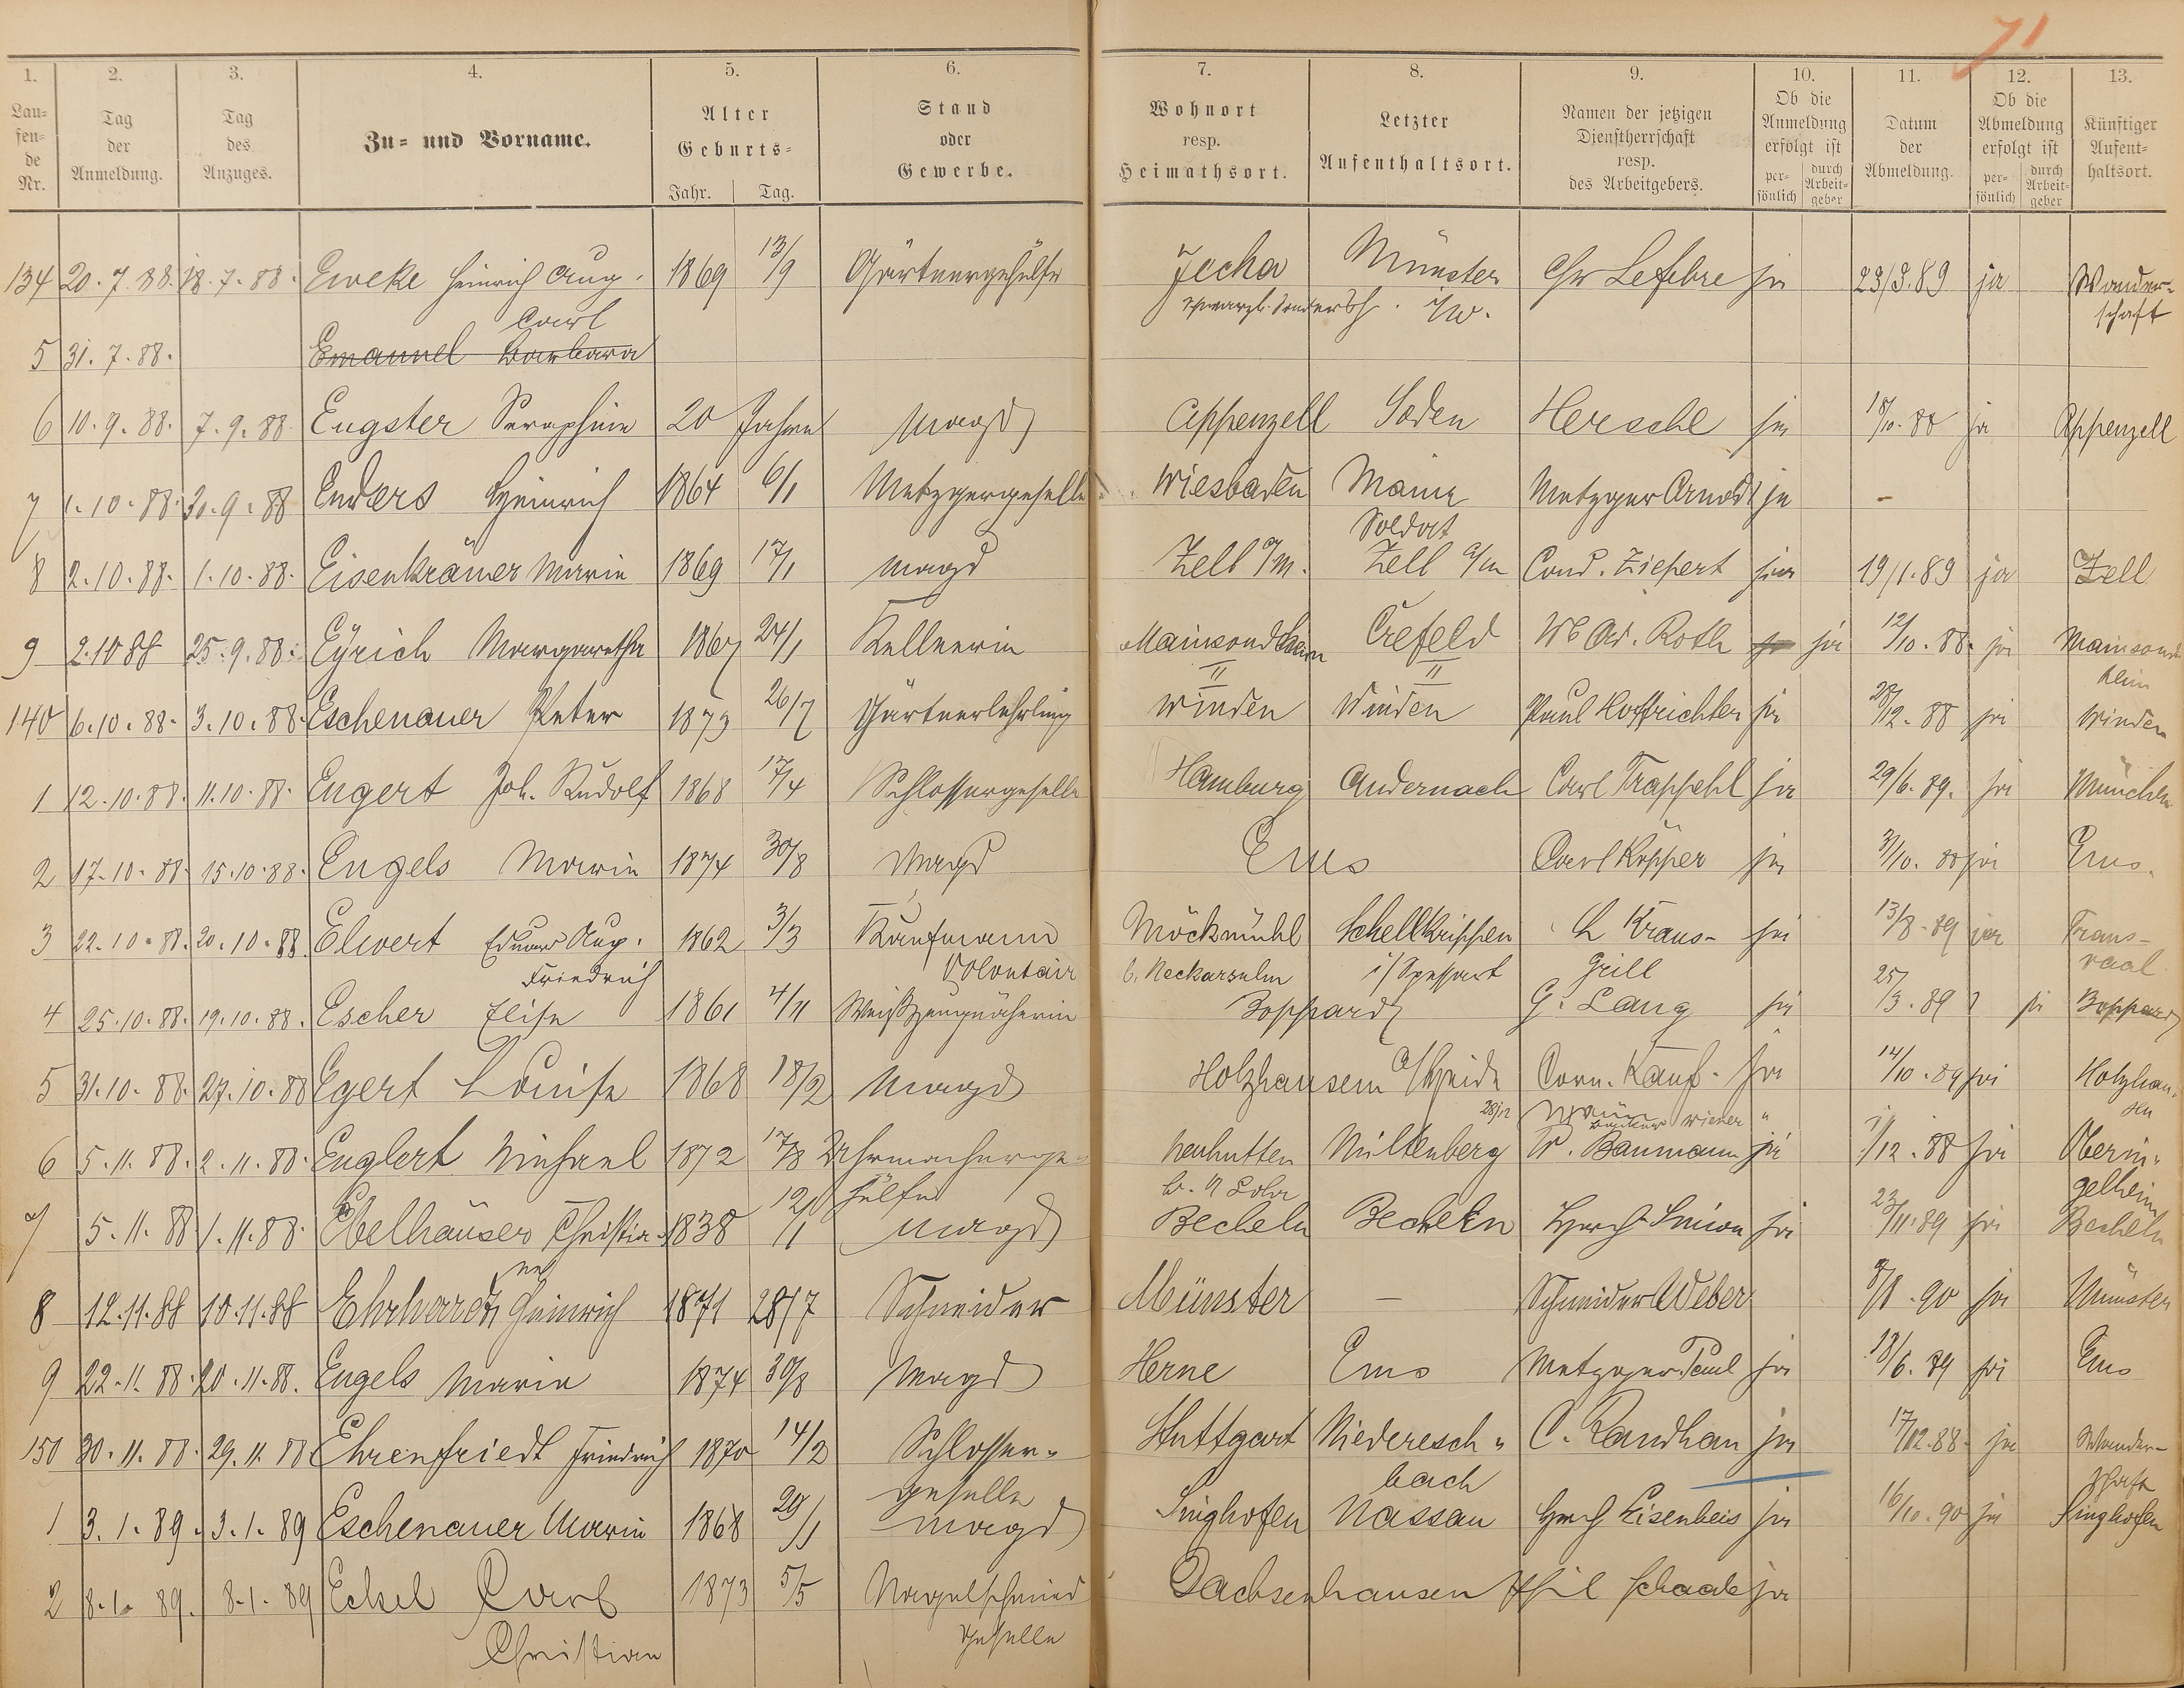 71
1. 2. 3. 4. 5. 6. 7. 8. 9. 10. 11. 12. 13.
Laufende Nr. Tag der Anmeldung. Tag des Anzuges. Zu= und Vorname. Alter Geburts= Jahr. Tag. Stand oder Gewerbe. Wohnort resp. Heimathsort. Letzter Aufenthaltsort. Namen der jetzigen Dienstherrschaft resp. des Arbeitgebers. Ob die Anmeldung erfolgt ist persönlich durch Arbeitgeber Datum der Abmeldung. Ob die Abmeldung erfolgt ist persönlich durch Arbeitgeber Künftiger Aufenthaltsort.
134 20.7.88. 18.7.88. Eweke Heinrich Aug. 1869 13/9 Gärtnergehülfe Jecha Münster Chr Lefebre ja 23/3.89 ja Wander=
Carl Schwarzb. Sondersh. i/W. schaft
5 31.7.88. Emanuel Barbara
6 10.9.88. 7.9.88. Engster Seraphine 20 Jahre Magd Appenzell Soden Herschl ja 18/10.88 ja Appenzell
7 1.10.88. 30.9.88 Enders Heinrich 1864 6/1 Metzgergeselle Wiesbaden Mainz Metzger Arnold ja -
Soldat
8 2.10.88. 1.10.88. Eisenkrämer Marie 1869 17/1 Magd Zell a/M. Zell a/m Cond. Ziepert ja 19/1.89 ja Zell
9 2.10 88 25.9.88. Eyrich Margaretha 1867 24/1 Kellnerin Mainsondheim Crefeld Wb Ad. Roth ja ja 12/10.88. ja Mainsond
heim
140 6.10.88. 3.10.88. Eschenauer Peter 1873 26/7 Gärtnerlehrling Winden Winden Paul Hoffrichter ja 28/12.88 ja Winden
1 12.10.88. 11.10.88. Engert Joh. Rudolf 1868 17/4 Schlossergeselle Hamburg Andernach Carl Trappehl ja 29/6.89. ja München
2 17.10.88. 15.10.88. Engels Marie 1874 30/8 Magd Ems Carl Köpper ja 31/10.88 ja Ems.
3 22.10.88. 20.10.88 Elwert Eduard Aug. 1862 3/3 Kaufmann Möckmühl Schellkrippen Ch Kraus- ja 13/8.89 ja Trans-
Friedrich Volontair b. Neckarsulm i/Spessart Grill vaal
4 25.10.88. 19.10.88. Escher Elise 1861 4/11 Weißzeugnäherin Boppard G. Lang ja 25/3.89 ja Boppard
5 31.10.88. 27.10.88 Egert Louise 1868 18/2 Magd Holzhausen a/Haide Corn. Kauf- ja 14/10.89 ja Holzhau-
28/12 mann Wiener " sen
6 5.11.88. 2.11.88. Englert Michael 1872 17/8 Uhrmacherge- Neuhütten Miltenberg W. Baumann ja 1/12.88 ja Oberin-
hülfe b. Lohr gelheim
7 5.11.88 1.11.88. Ebelhäuser Christia- 1838 12/11 Magd Becheln Becheln Hrch Simon ja 23/11.89 ja Becheln
ne
8 12.11.88 10.11.88 Ehrhardt Heinrich 1871 28/7 Schneider Münster — Schneider Weber 8/1.90 ja Münster
9 22.11.88. 20.11.88. Engels Marie 1874 30/8 Magd Herne Ems Metzger Paul ja 18/6.89 ja Ems
150 30.11.88. 29.11.88 Ehrenfriedt Friedrich 1870 14/2 Schlosser- Stuttgart Niederesch- C. Randhan ja 17/12.88. ja Wander-
geselle bach schaft
1 3.1.89. 3.1.89 Eschenauer Marie 1868 29/1 Magd Singhofen Nassau Hrch Eisenbeis ja 16/10.90 ja Singhofen
2 8.1.89. 8.1.89 Eckel Carl 1873 5/5 Nagelschmied Dachsenhausen Phil Schaab ja
Christian Geselle